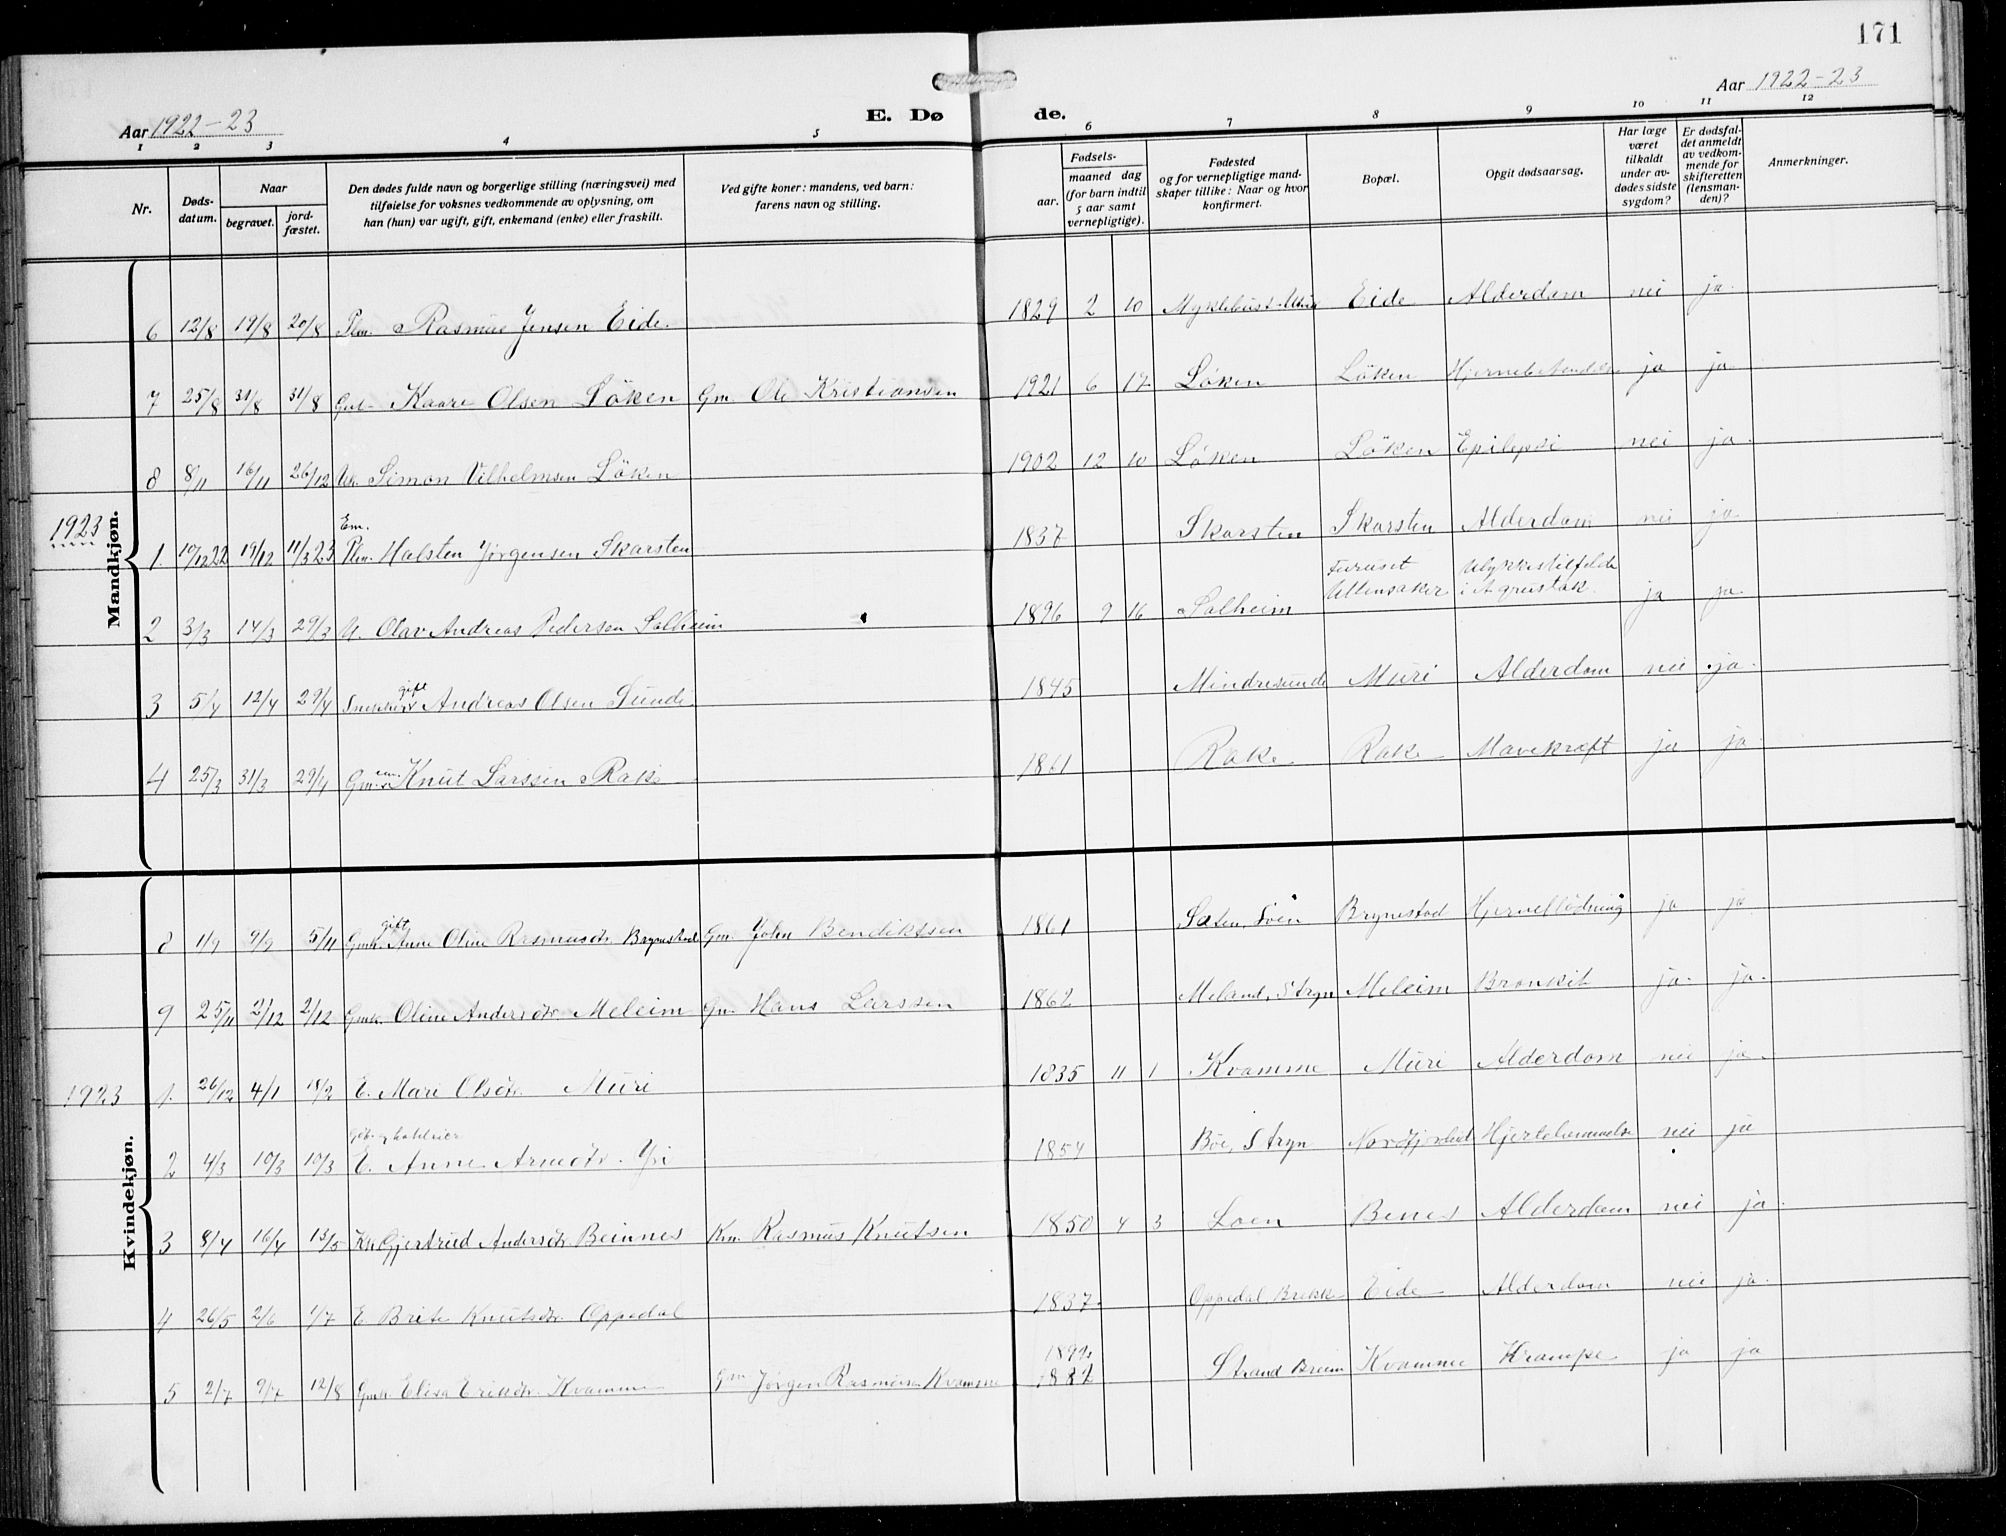 171
Aar 1922-23
E. Døde.
Aar 1922-23
1 2 3 4 5 6 7 8 9 10 11 12
Nr.
Døds-datum.
Naar
begravet.
jord-fæstet.
Den dødes fulde navn og borgerlige stilling (næringsvei) med
tilføielse for voksnes vedkommende av oplysning, om
han (hun) var ugift, gift, enkemand (enke) eller fraskilt.
Ved gifte koner: mandens, ved barn:
farens navn og stilling.
Fødsels-
aar.
maaned dag
(for barn indtil
5 aar samt
vernepligtige).
Fødested
og for vernepligtige mand-
skaper tillike: Naar og hvor
konfirmert.
Bopæl.
Opgit dødsaarsag.
Har læge
været
tilkaldt
under av-
dødes sidste
sygdom?
Er dødsfal-
det anmeldt
av vedkom-
mende for
skifteretten
(lensman-
den)?
Anmerkninger.
Mandkjøn.
6 12/8 19/8 20/8 Rasmus Jensen Eide. 1829 2 10 Myklebust Eide Alderdom nei ja.
7 25/8 31/8 31/8 Kaare Olsen Löken Gm. Ole Kristiansen 1921 6 17 Löken Löken ja ja.
8 8/11 16/11 26/12 Simon Vilhelmsen Löken 1902 12 10 Löken Löken Epilepsi nei ja.
1923
1. 10/12 22 19/12 11/3 23 Em. Halsten Jörgensen Skarsten 1837 Skarsten Skarsten Alderdom nei ja
2 3/3 14/3 29/3 U. Olav Andreas Pedersen Solheim 1896 9 16 Solheim Furuset Ullensaker Ulykkestilfelde i ja ja
3 5/4 12/4 29/4 Snekker gift Andreas Olsen Sunde 1845 Mindresunde Muri Alderdom nei ja.
4 25/3 31/3 29/4 Gm. em. Knut Larssen Rake 1861 Rake Rake Mavekræft ja ja
Kvindekjøn.
8 1/9 9/9 5/11 Gmk. gift Anne Oline Rasmusdtr. Brynestad Gm. John Bendiktsen 1861 Sæten, Loen Brynestad Hjerneflödning ja ja
9 25/11 2/12 2/12 Gmk. Oline Andersdtr. Meleim Gm. Hans Larssen 1862 Meland, Stryn Meleim Bronkit ja. ja.
1923
1. 26/12 4/1 18/2 E. Mari Olsdtr. Muri 1835 11 1 Kvamme Muri Alderdom nei ja.
2 4/3 10/3 10/3 E. Anne Arnedtr. Yri 1854 Böe, Stryn Nordfjordeid Hjertelammelse nei ja
3 8/4 16/4 13/5 Gjertrud Andersdtr. Beinnes Km. Rasmus Knutsen 1850 4 3 Loen Benes Alderdom nei ja.
4 26/5 2/6 1/7 E Brite Knutsdtr. Oppedal 1837 Oppedal Brekke Eide Alderdom nei ja.
5 2/7 9/7 12/8 Gmk. Elisa Eriksdtr. Kvamme Gm Jörgen Rasmusen Kvamme Strand Breim Kvamme Krampe ja ja